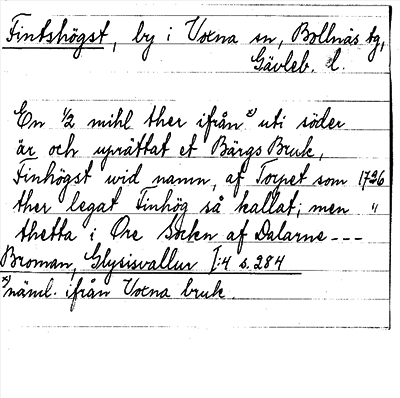 Finkshögst, by i Voxna sn, Bollnäs tg,
Gävleb. l.
En 1/2 mihl ther ifrån x) uti söder
är och uprättat et Bärgs Bruk,
Finhögst wid namn, af Torpet som 1726
ther legat Finhög så kallat; men "
thetta i Ore Sockn af Dalarne ---
Broman, Glysisvallur I:4 s. 284
x) näml. ifrån Voxna bruk.